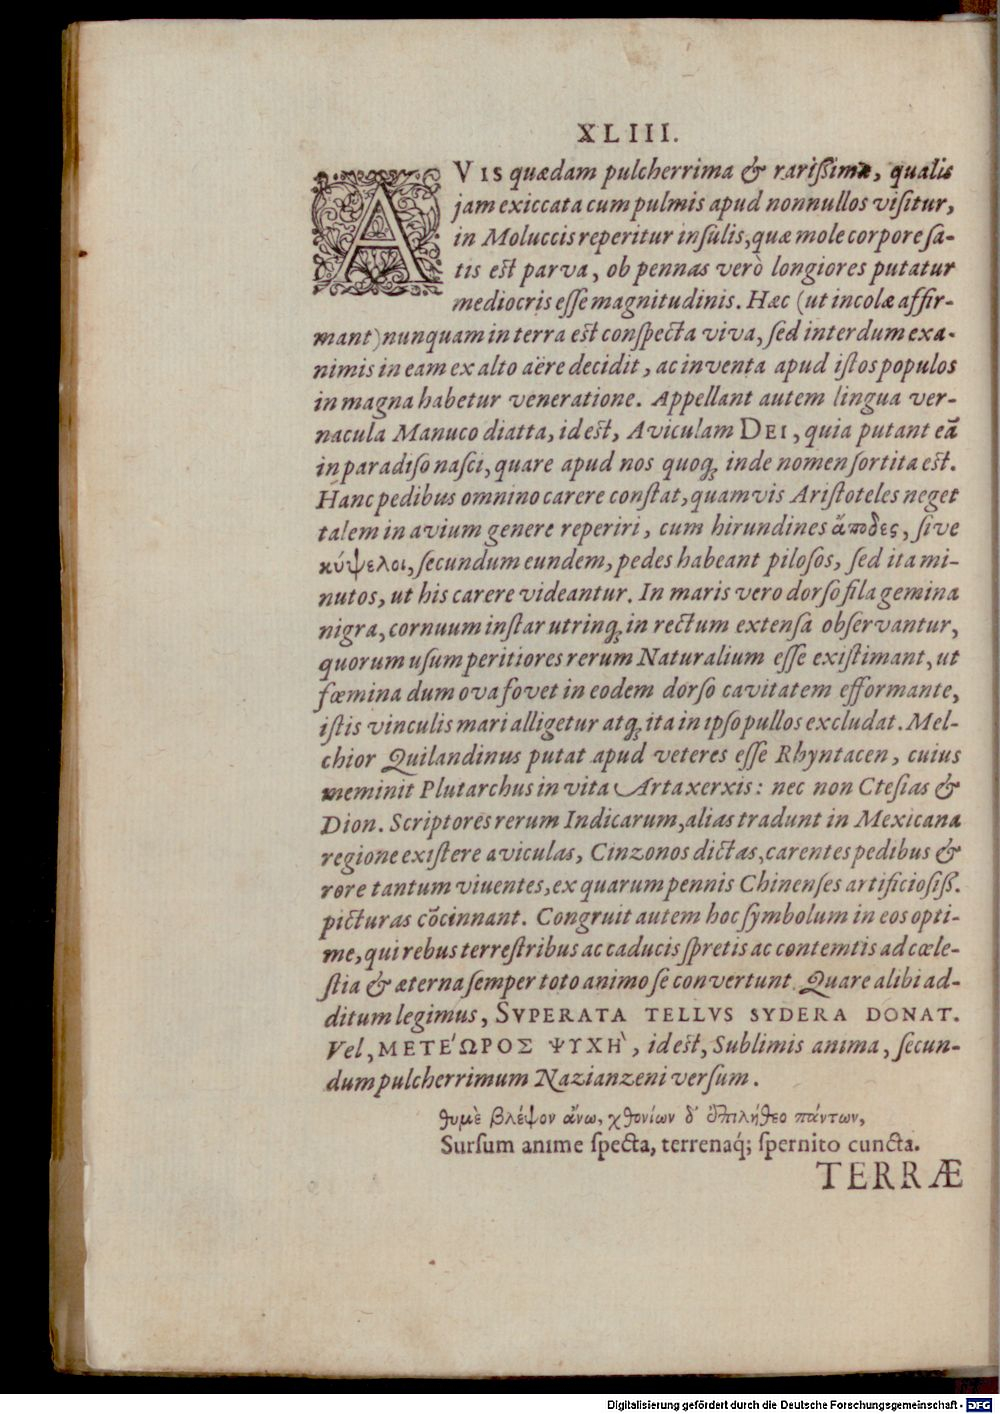 XLIII.
AVIS quædam pulcherrima & rarißima, qualis
jam exiccata cum pulmis apud nonnullos viſitur,
in Moluccis reperitur inſulis, quæ mole corpore ſa-
tis eſt parva, ob pennas verò longiores putatur
mediocris eſſe magnitudinis. Hæc (ut incolæ affir-
mant) nunquam in terra eſt conſpecta viva, ſed interdum exa-
nimis in eam ex alto aëre decidit, ac inventa apud iſtos populos
in magna habetur veneratione. Appellant autem lingua ver-
nacula Manuco diatta, id eſt, Aviculam DEI, quia putant eā
in paradiſo naſci, quare apud nos quoq; inde nomen ſortita eſt.
Hanc pedibus omnino carere conſtat, quamvis Ariſtoteles neget
talem in avium genere reperiri, cum hirundines ἄποδες, ſive
κύψελοι, ſecundum eundem, pedes habeant piloſos, ſed ita mi-
nutos, ut his carere videantur. In maris vero dorſo fila gemina
nigra, cornuum inſtar utrinq; in rectum extenſa obſervantur,
quorum uſum peritiores rerum Naturalium eſſe exiſtimant, ut
fœmina dum ova fovet in eodem dorſo cavitatem efformante,
iſtis vinculis mari alligetur atq; ita in ipſo pullos excludat. Mel-
chior Quilandinus putat apud veteres eſſe Rhyntacen, cuius
meminit Plutarchus in vita Artaxerxis: nec non Cteſias &
Dion. Scriptores rerum Indicarum, alias tradunt in Mexicana
regione exiſtere aviculas, Cinzonos dictas, carentes pedibus &
rore tantum viuentes, ex quarum pennis Chinenſes artificioſiß.
picturas cōcinnant. Congruit autem hoc ſymbolum in eos opti-
me, qui rebus terreſtribus ac caducis ſpretis ac contemtis ad cœle-
ſtia & æterna ſemper toto animo ſe convertunt. Quare alibi ad-
ditum legimus, SVPERATA TELLVS SYDERA DONAT.
Vel, ΜΕΤΕ'ΩΡΟΣ ΨΥΧΗ`, id eſt, Sublimis anima, ſecun-
dum pulcherrimum Nazianzeni verſum.
θυμὲ βλέψον ἄνω, χθονίων δ' ἐπιλήθεο πάντων,
Surſum anime ſpecta, terrenaq́; ſpernito cuncta.
TERRÆ
Digitalisierung gefördert durch die Deutsche Forschungsgemeinschaft - DFG